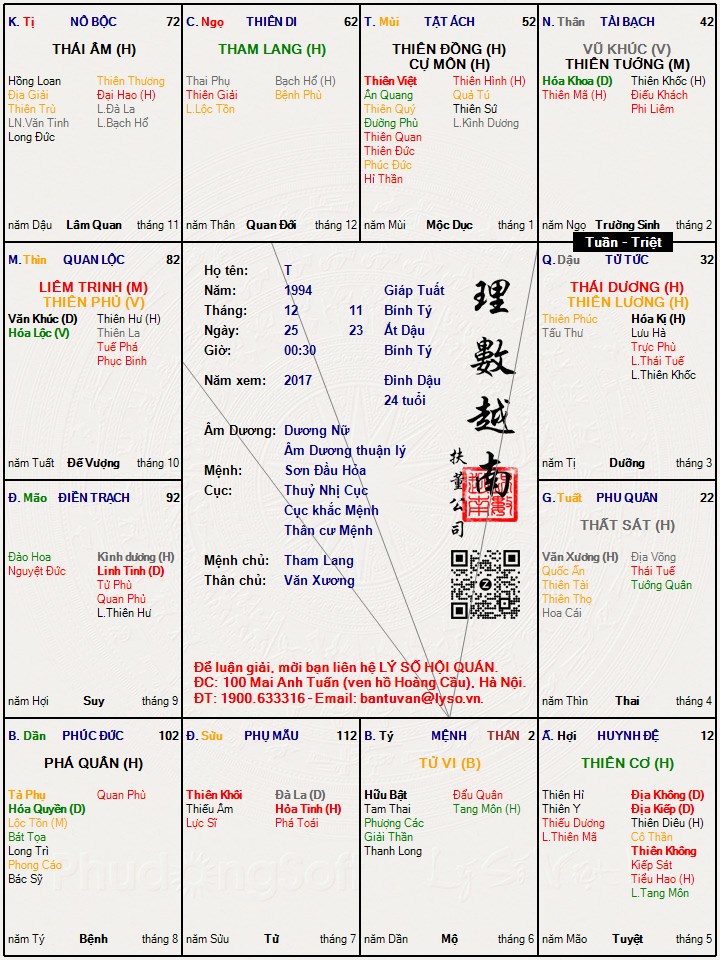 K. Tị NÔ BỘC 72
THÁI ÂM (H)
Hồng Loan Thiên Thương
Địa Giải Đại Hao (H)
Thiên Trù L.Đà La
LN.Văn Tinh L.Bạch Hổ
Long Đức
năm Dậu Lâm Quan tháng 11
C. Ngọ THIÊN DI 62
THAM LANG (H)
Thai Phụ Bạch Hổ (H)
Thiên Giải Bệnh Phù
L.Lộc Tồn
năm Thân Quan Đới tháng 12
T. Mùi TẬT ÁCH 52
THIÊN ĐỒNG (H)
CỰ MÔN (H)
Thiên Việt Thiên Hình (H)
Ân Quang Quả Tú
Thiên Quý Thiên Sứ
Đường Phù L.Kình Dương
Thiên Quan
Thiên Đức
Phúc Đức
Hỉ Thần
năm Mùi Mộc Dục tháng 1
N. Thân TÀI BẠCH 42
VŨ KHÚC (V)
THIÊN TƯỚNG (M)
Hóa Khoa (D) Thiên Khốc (H)
Thiên Mã (H) Điếu Khách
Phi Liêm
năm Ngọ Trường Sinh tháng 2
Tuần - Triệt
M. Thìn QUAN LỘC 82
LIÊM TRINH (M)
THIÊN PHỦ (V)
Văn Khúc (D) Thiên Hư (H)
Hóa Lộc (V) Thiên La
Tuế Phá
Phục Binh
năm Tuất Đế Vượng tháng 10
Họ tên: T
Năm: 1994 Giáp Tuất
Tháng: 12 11 Bính Tý
Ngày: 25 23 Ất Dậu
Giờ: 00:30 Bính Tý
Năm xem: 2017 Đinh Dậu
24 tuổi
Âm Dương: Dương Nữ
Âm Dương thuận lý
Mệnh: Sơn Đầu Hỏa
Cục: Thuỷ Nhị Cục
Cục khắc Mệnh
Thân cư Mệnh
Mệnh chủ: Tham Lang
Thân chủ: Văn Xương
理數越南
扶董公司
Để luận giải, mời bạn liên hệ LÝ SỐ HỘI QUÁN.
ĐC: 100 Mai Anh Tuấn (ven hồ Hoàng Cầu), Hà Nội.
ĐT: 1900.633316 - Email: bantuvan@lyso.vn.
Q. Dậu TỬ TỨC 32
THÁI DƯƠNG (H)
THIÊN LƯƠNG (H)
Thiên Phúc Hóa Kị (H)
Tấu Thư Lưu Hà
Trực Phù
L.Thái Tuế
L.Thiên Khốc
năm Tị Dưỡng tháng 3
Đ. Mão ĐIỀN TRẠCH 92
Đào Hoa Kình dương (H)
Nguyệt Đức Linh Tinh (D)
Tử Phù
Quan Phủ
L.Thiên Hư
năm Hợi Suy tháng 9
G. Tuất PHU QUÂN 22
THẤT SÁT (H)
Văn Xương (H) Địa Võng
Quốc Ấn Thái Tuế
Thiên Tài Tướng Quân
Thiên Thọ
Hoa Cái
năm Thìn Thai tháng 4
B. Dần PHÚC ĐỨC 102
PHÁ QUÂN (H)
Tả Phụ Quan Phù
Hóa Quyền (D)
Lộc Tồn (M)
Bát Tọa
Long Trì
Phong Cáo
Bác Sỹ
năm Tý Bệnh tháng 8
Đ. Sửu PHỤ MẪU 112
Thiên Khôi Đà La (D)
Thiếu Âm Hỏa Tinh (H)
Lực Sĩ Phá Toái
năm Sửu Tử tháng 7
B. Tý MỆNH THÂN 2
TỬ VI (B)
Hữu Bật Đẩu Quân
Tam Thai Tang Môn (H)
Phượng Các
Giải Thần
Thanh Long
năm Dần Mộ tháng 6
Ấ. Hợi HUYNH ĐỆ 12
THIÊN CƠ (H)
Thiên Hỉ Địa Không (D)
Thiên Y Địa Kiếp (D)
Thiếu Dương Thiên Diêu (H)
L.Thiên Mã Cô Thần
Thiên Không
Kiếp Sát
Tiểu Hao (H)
L.Tang Môn
năm Mão Tuyệt tháng 5